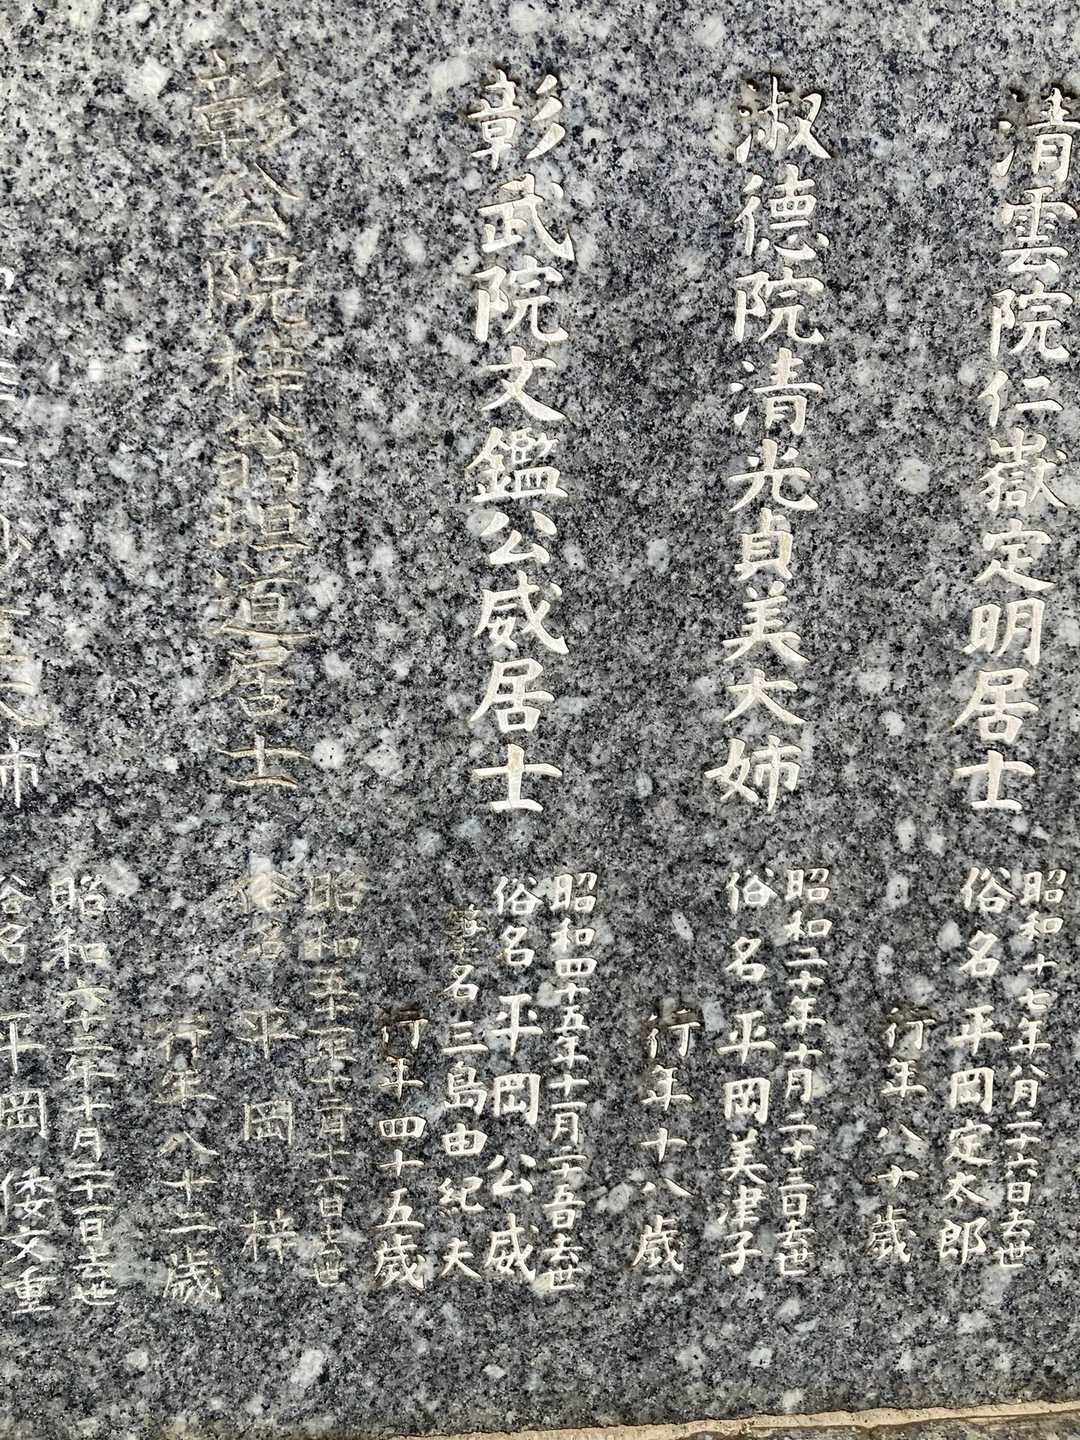 清雲院仁嶽定明居士
昭和十七年八月二十六日去世
俗名 平岡定太郎
行年八十歳
淑德院清光貞美大姉
昭和二十年十月二十三日去世
俗名 平岡美津子
行年十八歳
彰武院文鑑公威居士
昭和四十五年十一月二十五日去世
俗名 平岡公威
筆名 三島由紀夫
行年四十五歳
彰公院梓翁坦道居士
昭和五十一年十二月十六日去世
俗名 平岡 梓
行年八十二歳
大姉
昭和六十二年十月二十一日去世
俗名 平岡 倭文重